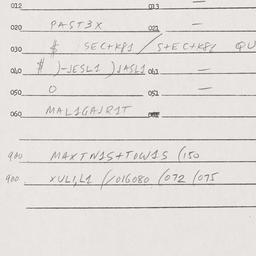 012 — 013 —
020 PAST3X 021 —
030 $ SEC+K81 / S+EC+K81 QU
040 $ )-JESL1 )JASL1 041 —
050 O 051 —
060 MAL1GAJR1T
900 MAXTN1S+TOW1S (150
900 XUL1,L1 (/016080 (072 (075